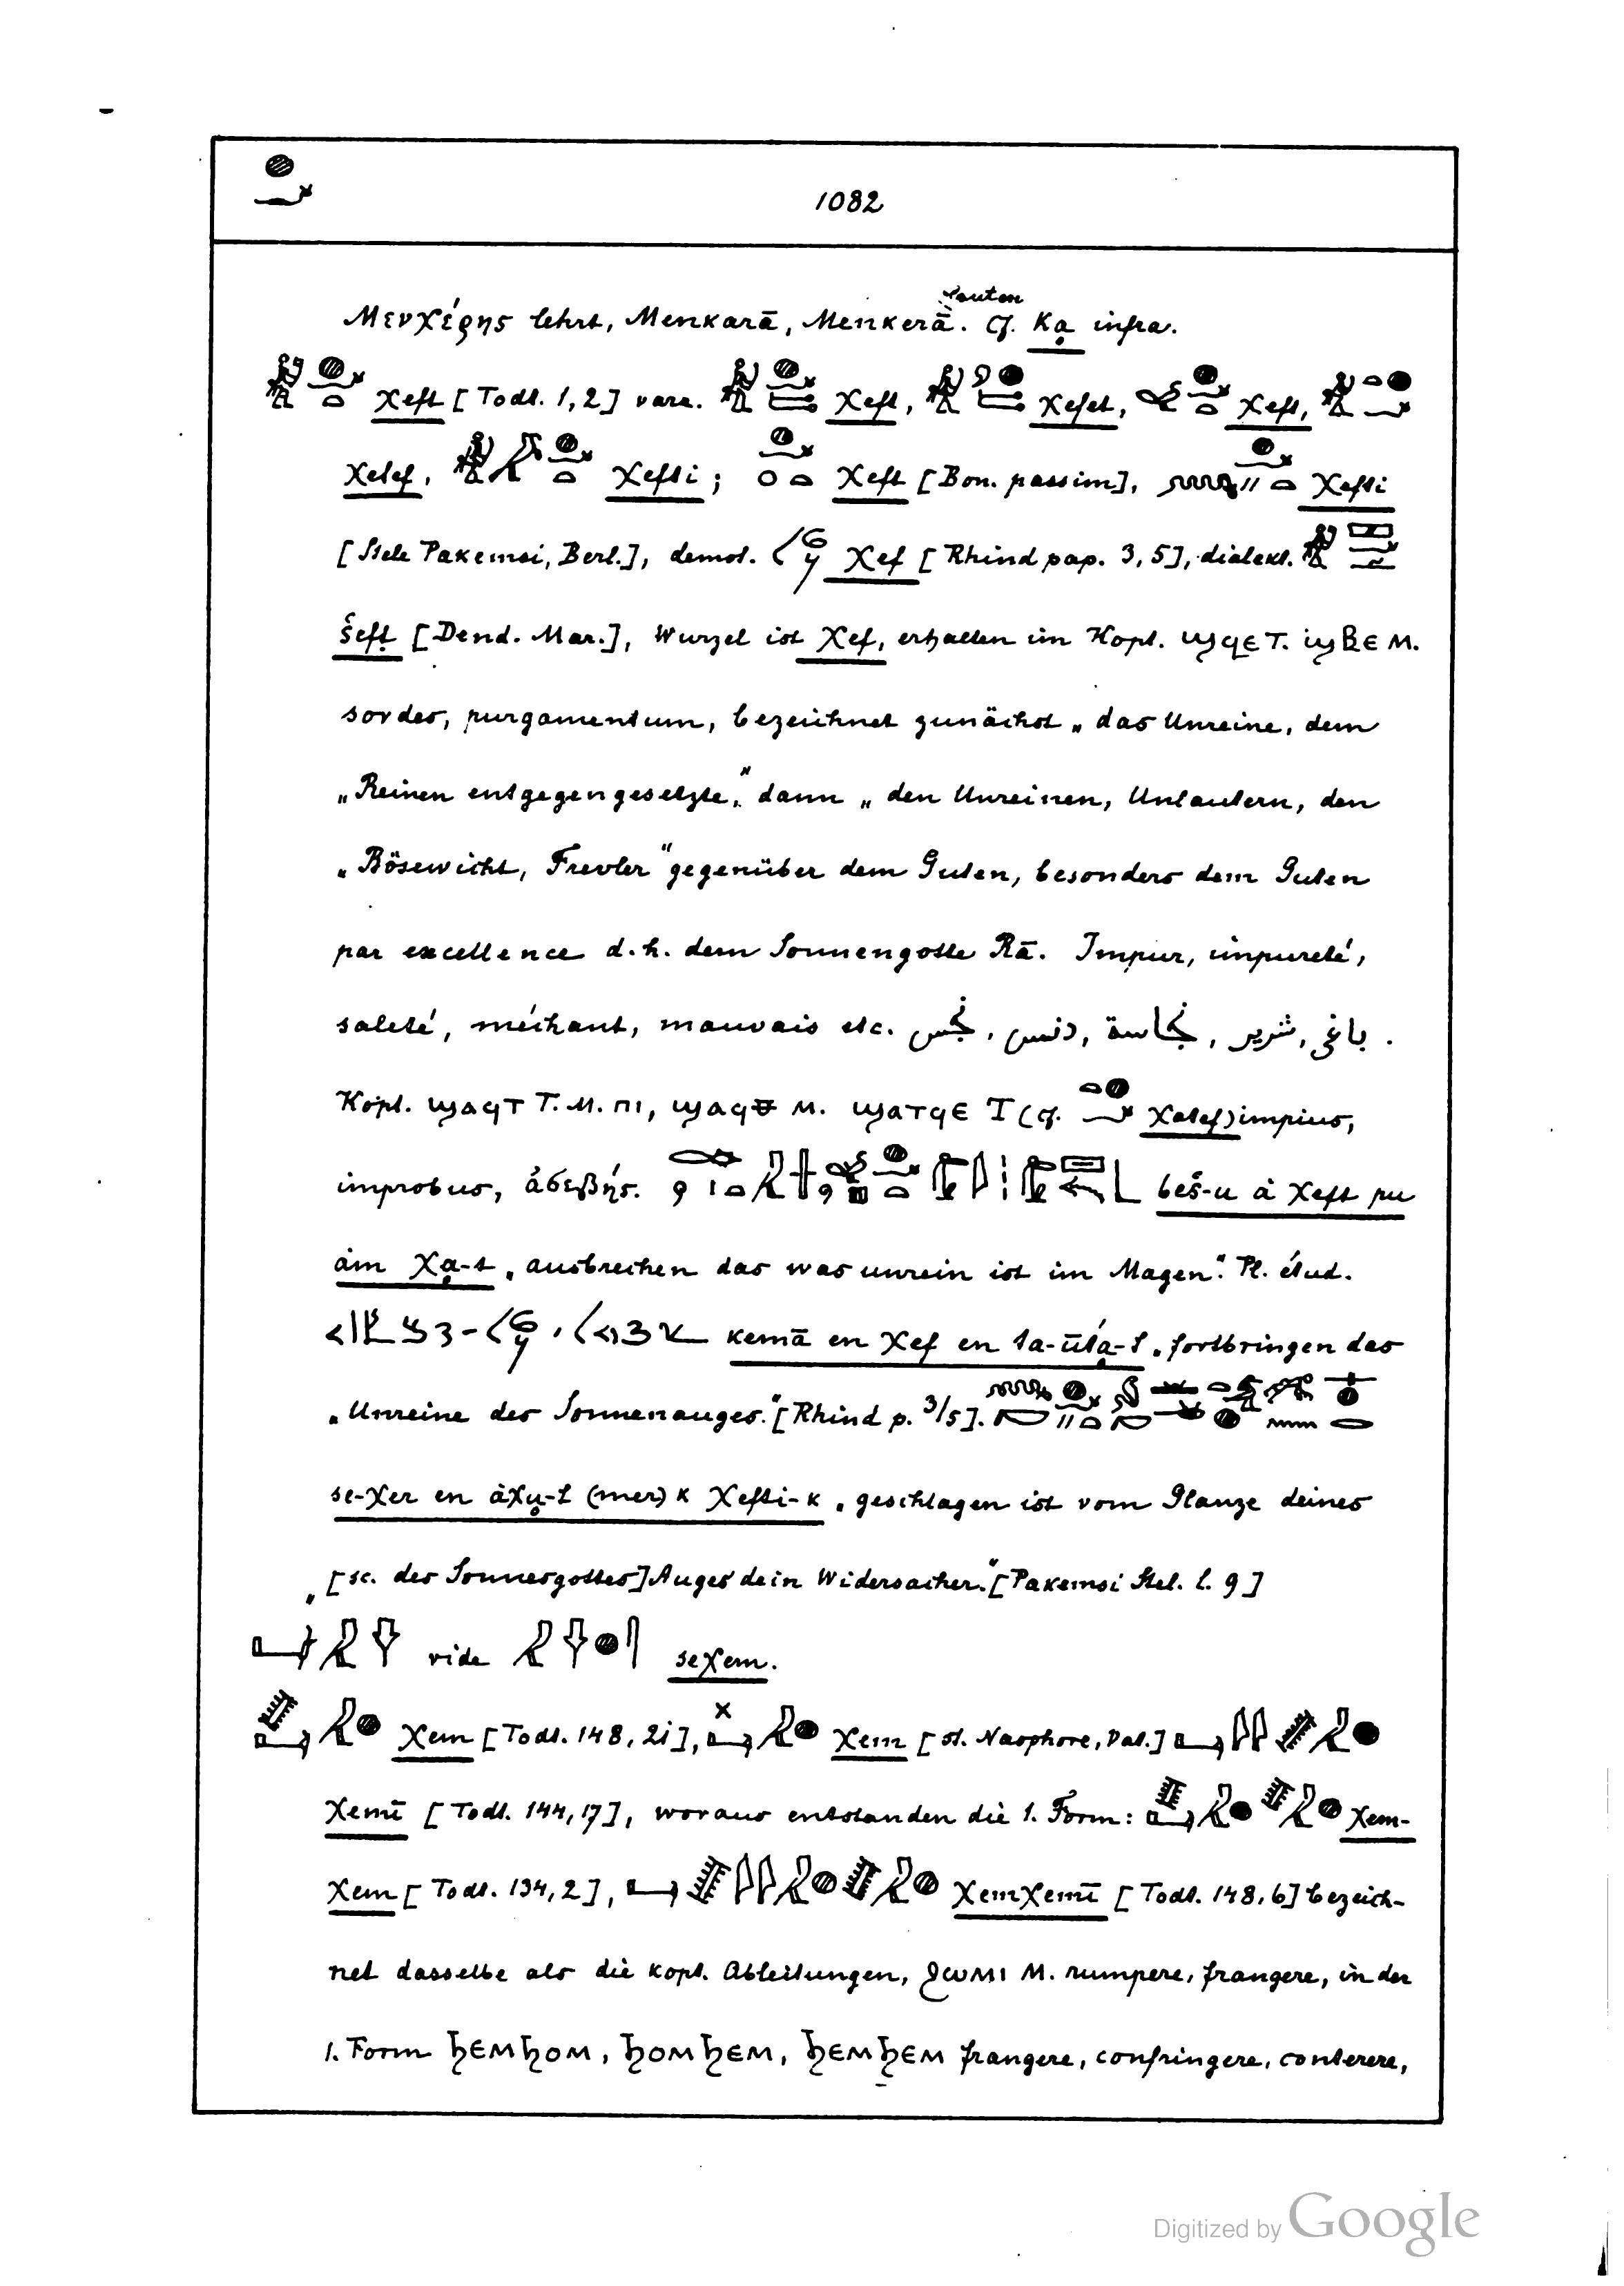 1082
lauten
Μενχέρης lehrt, Menkarā, Menkerā. Cf. Ka̤ infra.
χeft [Todt. 1,2] vara. χeft, χefet, χeft,
χetef, χefti; χeft [Bon. passim], χefti
[Stele Pakemsi, Berl.], demot. χef [Rhind pap. 3,5], dialekt.
šeft [Dend. Mar.], Wurzel ist χef, erhalten im Kopt. ϣϥⲉ T. ϣⲃⲉ M.
sordes, purgamentum, bezeichnet zunächst „das Unreine, dem
„Reinen entgegengesetzte," dann „den Unreinen, Unlautern, den
„Bösewicht, Frevler" gegenüber dem Guten, besonders dem Guten
par excellence d.h. dem Sonnengotte Rā. Impur, impureté,
saleté, méchant, mauvais etc. نجس, دنس, نجاسة, شرير, باغى.
Kopt. ϣⲁϥⲧ T. M. ⲡⲓ, ϣⲁϥ M. ϣⲁⲧϥⲉ T (cf. χatef) impius,
improbus, ἀσεβής. beš-u à χeft pu
àm χa̤-t „ausbrechen das was unrein ist im Magen". Pl. étud.
kemā en χef en ta-ūt́a̤-t „fortbringen das
„Unreine des Sonnenauges." [Rhind p. 3/5].
se-χer en àχṳ-t (mer) k χefti-k „geschlagen ist vom Glanze deines
„[sc. des Sonnesgottes] Auges dein Widersacher." [Pakemsi Stel. l. 9]
vide seχem.
χem [Todt. 148, 21], χem [st. Naophore, Vat.]
χemī [Todt. 144,17], woraus entstanden die 1. Form: χem-
χem [Todt. 134,2], χemχemī [Todt. 148,6] bezeich-
net dasselbe als die kopt. Ableitungen, ϧⲱⲙⲓ M. rumpere, frangere, in der
1. Form ϧⲉⲙϧⲟⲙ, ϧⲟⲙϧⲉⲙ, ϧⲉⲙϧⲉⲙ frangere, confringere, conterere,
Digitized by Google